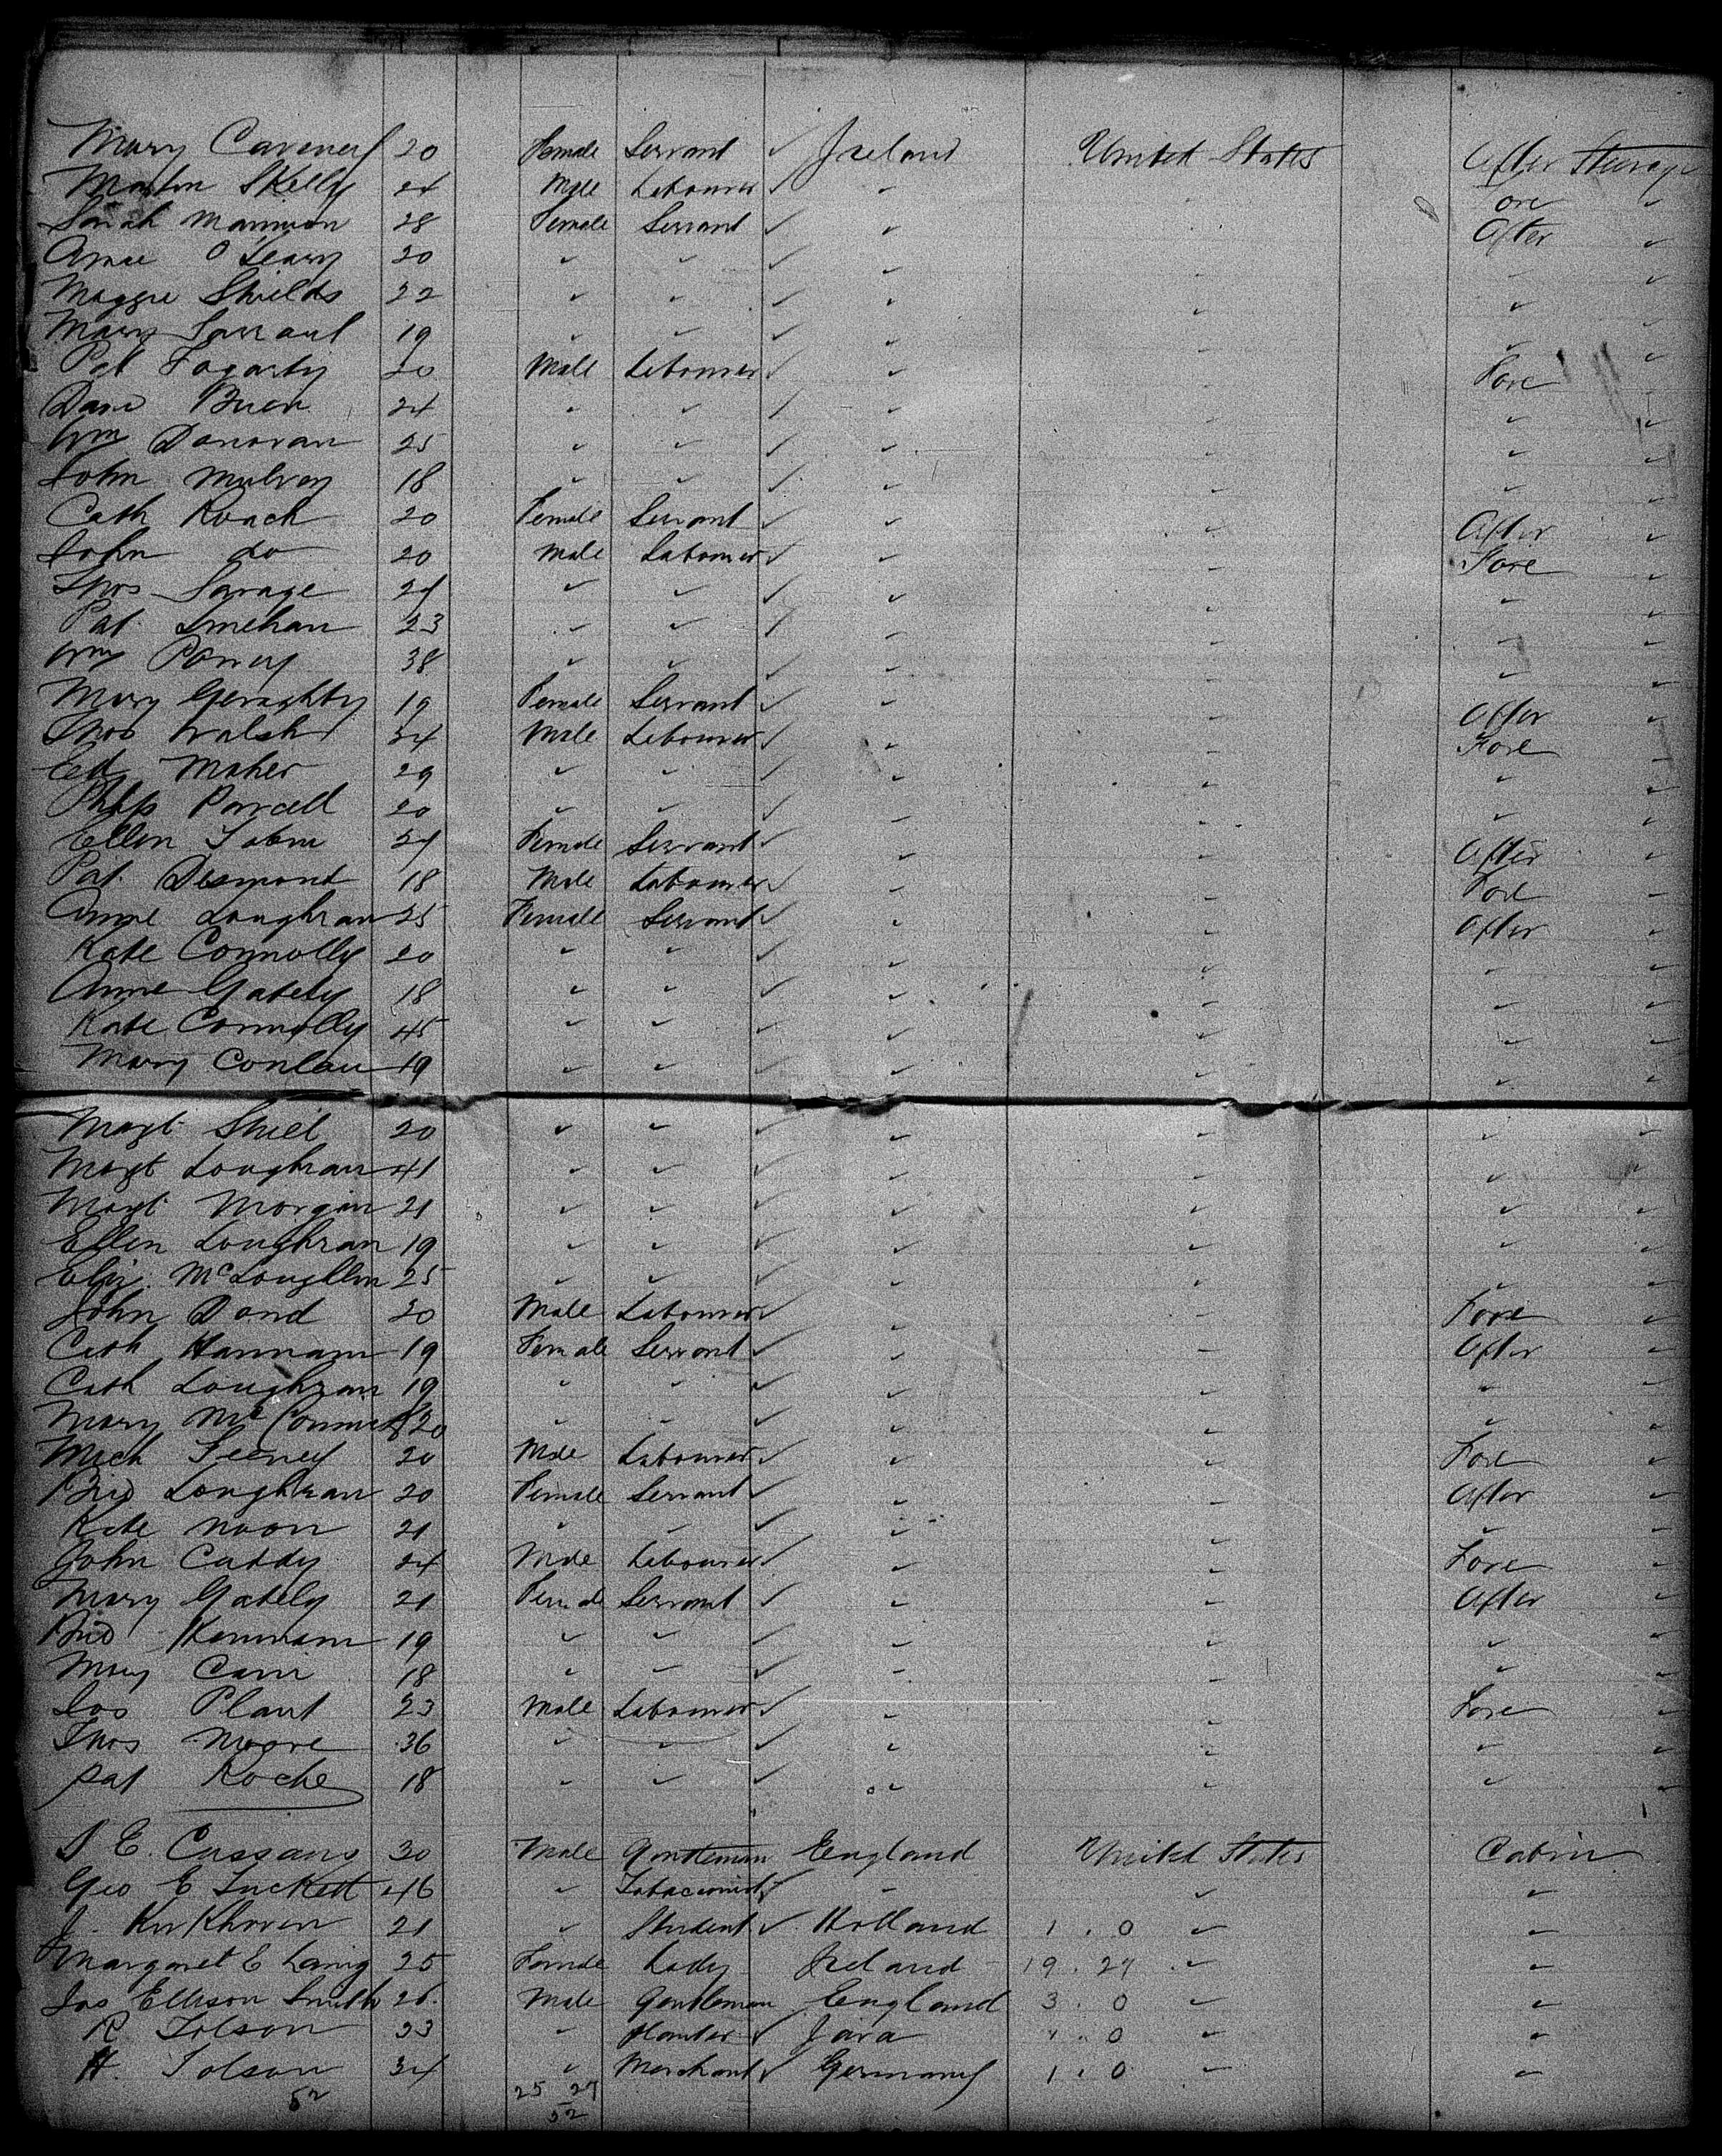 Mary Caveney 20 Female Servant ✓ Ireland United States After Steerage
Martin Skelly 24 Male Labourer ✓ " Fore "
Sarah Mannion 28 Female Servant ✓ " After "
Annie O'Leary 20 " " ✓ " " " "
Maggie Shields 22 " " ✓ " " " "
Mary 19 " " ✓ " " " "
Pat Fogarty 20 Male Labourer ✓ " " Fore "
Dan 24 " " ✓ " " " "
Wm Donovan 25 " " ✓ " " " "
John Mulvey 18 " " ✓ " " " "
Cath Roach 20 Female Servant ✓ " " After "
John do 20 Male Labourer ✓ " " Fore "
Thos Savage 24 " " ✓ " " " "
Pat 23 " " ✓ " " " "
Wm 38 " " ✓ " " " "
Mary Geraghty 19 Female Servant ✓ " " After "
Thos Walsh 34 Male Labourer ✓ " " Fore "
Ed Maher 29 " " ✓ " " " "
Purcell 20 " " ✓ " " " "
Ellen Tobin 24 Female Servant ✓ " " After "
Pat. Desmond 18 Male Labourer ✓ " " Fore "
Anne Loughran 25 Female Servant ✓ " " After "
Kate Connolly 20 " " ✓ " " " "
Anne Gately 18 " " ✓ " " " "
Kate Connolly 45 " " ✓ " " " "
Mary Conlan 19 " " ✓ " " " "
Magt Shiel 20 " " ✓ " " " "
Magt Loughran 41 " " ✓ " " " "
Magt Morgan 21 " " ✓ " " " "
Ellen Loughran 19 " " ✓ " " " "
Eliz. McLoughlin 25 " " ✓ " " " "
John Dond 20 Male Labourer ✓ " " Fore "
Cath Hannam 19 Female Servant ✓ " " After "
Cath Loughran 19 " " ✓ " " " "
Mary 20 " " ✓ " " " "
Mich Feeney 20 Male Labourer ✓ " " Fore "
Brid Loughran 20 Female Servant ✓ " " After "
Kate Noon 21 " " ✓ " " " "
John Caddy 24 Male Labourer ✓ " " Fore "
Mary Gately 21 Female Servant ✓ " " After "
Brid 19 " " ✓ " " " "
Mary 18 " " ✓ " " " "
Jos Plant 23 Male Labourer ✓ " " Fore "
Thos Moore 36 " " ✓ " " " "
Pat Roche 18 " " ✓ " " " "
E. Cussans 30 Male Gentleman England United States Cabin
Geo E Tuckett 46 " Tobacconist ✓ " " "
J. Kerkhoven 21 " Student ✓ Holland 1 . 0 " "
Margaret E Laing 25 Female Lady Ireland 19 . 27 " "
Jas Ellison Smith 26 Male Gentleman England 3 . 0 " "
R. Tolson 33 " Planter ✓ Java 1 . 0 " "
H. Tolson 34 " Merchant ✓ Germany 1 . 0 " "
52 25 27
52